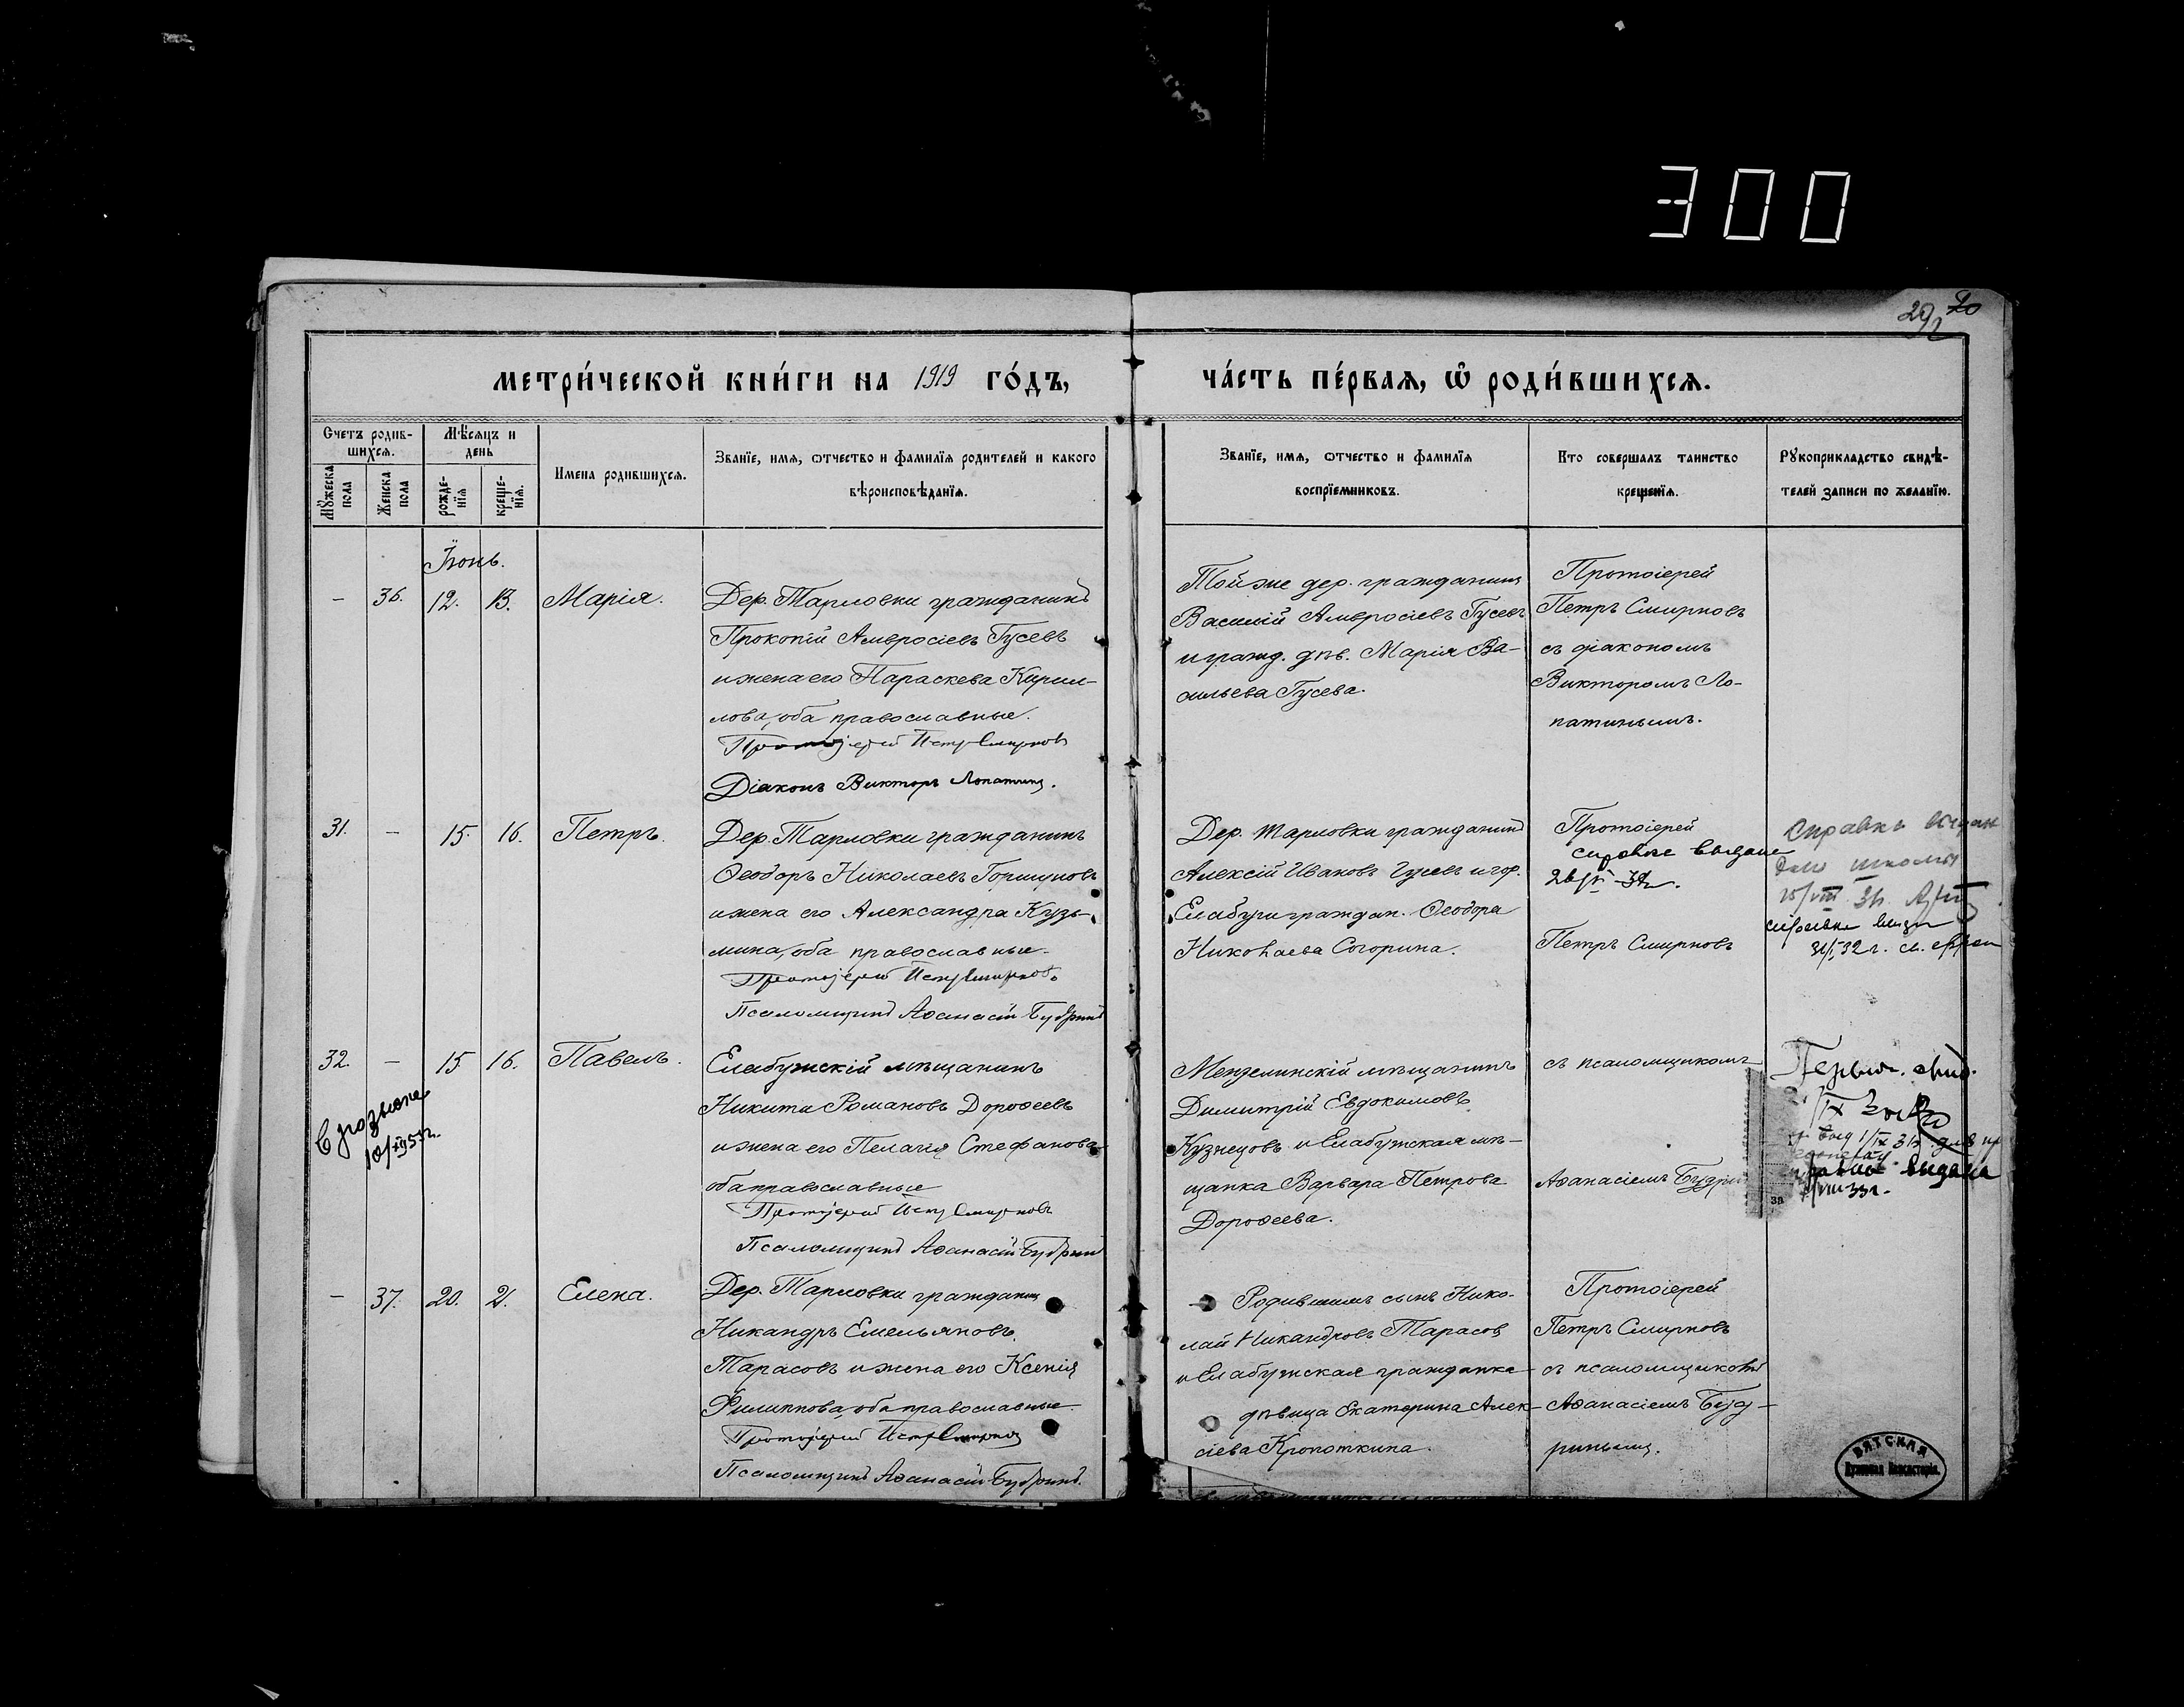 300
292 20
МЕТРИ́ЧЕСКОЙ КНИ́ГИ НА 1919 ГО́ДЪ,
ЧА́СТЬ ПЕ́РВАЯ, Ѿ РОДИ́ВШИХСЯ.
Счетъ родив-
шихся.
Мꙋжеска пола
Женска пола
Мѣсяцъ и
день
рожде-
нїя
креще-
нїя.
Имена родившихся.
Званїе, имя, ѿтчество и фамилїя родителей и какого
вѣроисповѣданїя.
Званїе, имя, ѿтчество и фамилїя
воспрїемниковъ.
Кто совершалъ таинство
крещенїя.
Рꙋкоприкладство свидѣ-
телей записи по желанїю.
Іюнь.
— 36. 12. 13. Марія.
Дер. Тарловки гражданинъ
Прокопій Амвросіевъ Гусевъ
и жена его Параскева Кирил-
лова, оба православные.
Протоіерей Петръ Смирновъ
Діаконъ Викторъ Лопатинъ.
Той же дер. гражданинъ
Василій Амвросіевъ Гусевъ
и гражд. дѣв. Марія Ва-
сильева Гусева.
Протоіерей
Петръ Смирновъ
съ діакономъ
Викторомъ Ло-
патинымъ.
31. — 15. 16. Петръ.
Дер. Тарловки гражданинъ
Ѳеодоръ Николаевъ Горшуновъ
и жена его Александра Кузь-
мина, оба православные.
Протоіерей Петръ Смирновъ
Псаломщикъ Аѳанасій Будринъ
Дер. Тарловки гражданинъ
Алексій Ивановъ Гусевъ и гор.
Елабуги граждан. Ѳеодора
Николаева Согорина.
Протоіерей
справка выдана
Петръ Смирновъ
Справка выдан
для школы
справка выдан
32. — 15. 16. Павелъ.
В розыске
Елабужскій мѣщанинъ
Никита Романовъ Дороѳеевъ
и жена его Пелагія Стефанова
оба православные
Протоіерей Петръ Смирновъ
Псаломщикъ Аѳанасій Будринъ
Мензелинскій мѣщанинъ
Димитрій Евдокимовъ
Кузнецовъ и Елабужская мѣ-
щанка Варвара Петрова
Дороѳеева.
съ псаломщикомъ
Аѳанасіемъ Будри
выдана
33 г.
— 37. 20. 21. Елена.
Дер. Тарловки гражданинъ
Никандръ Емельяновъ
Тарасовъ и жена его Ксенія
Филиппова, оба православные.
Протоіерей Петръ Смирновъ
Псаломщикъ Аѳанасій Будринъ.
Родившимъ сынъ Нико-
лай Никандровъ Тарасов
и Елабужская гражданка
дѣвица Екатерина Алек-
сіева Кропоткина.
Протоіерей
Петръ Смирновъ
съ псаломщикомъ
Аѳанасіемъ Буд-
ринымъ.
ВЯТСКАЯ
Духовная Консисторія.